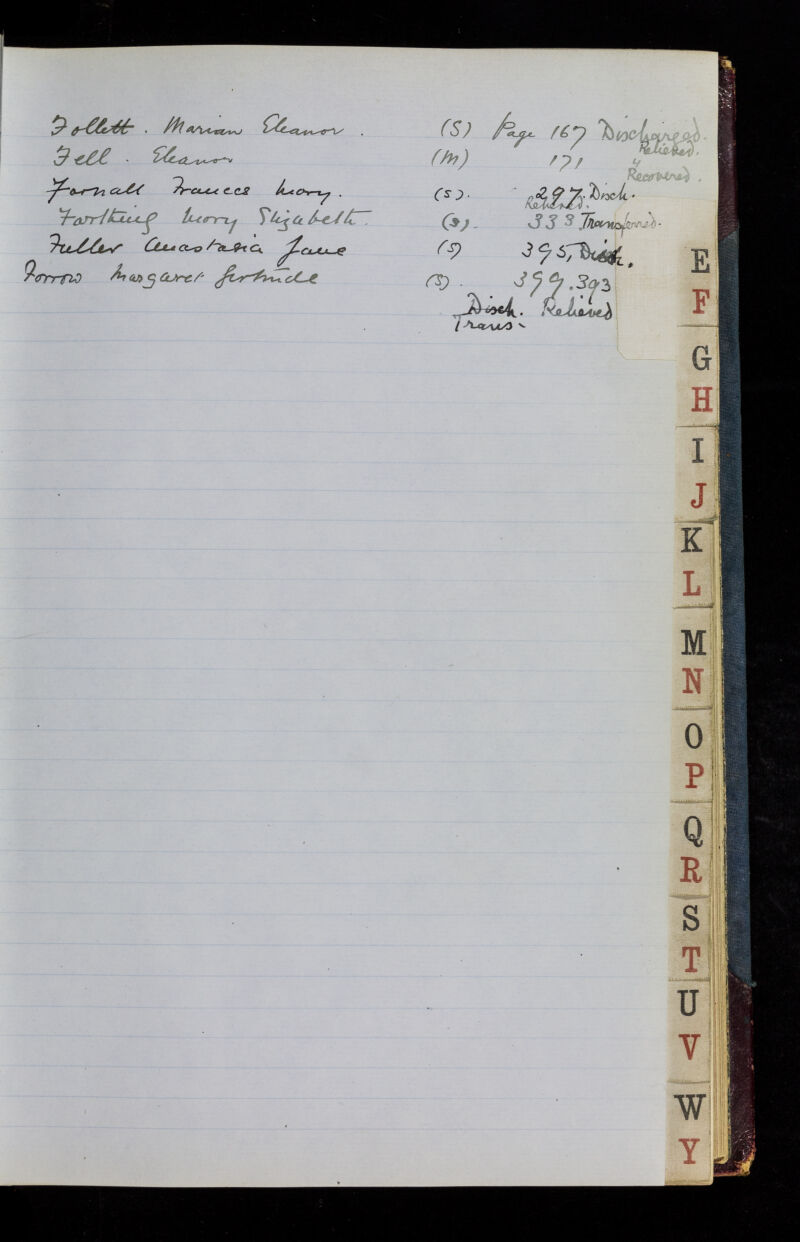 Follett . Marian Eleanor . (S) Page 167 Discharged.
Relieved.
Fell . Eleanor (M) 171 "
Recovered.
Farnall Frances Mary . (S). 297. Disch.
Relieved.
Farthing Mary Elizabeth . (S). 333 Transferred.
Fuller Anastasia Jane (S) 395, Disch.
Forrow Margaret Gertrude (S) . 399.393
Disch. Relieved
Trans-
E
F
G
H
I
J
K
L
M
N
O
P
Q
R
S
T
U
V
W
Y